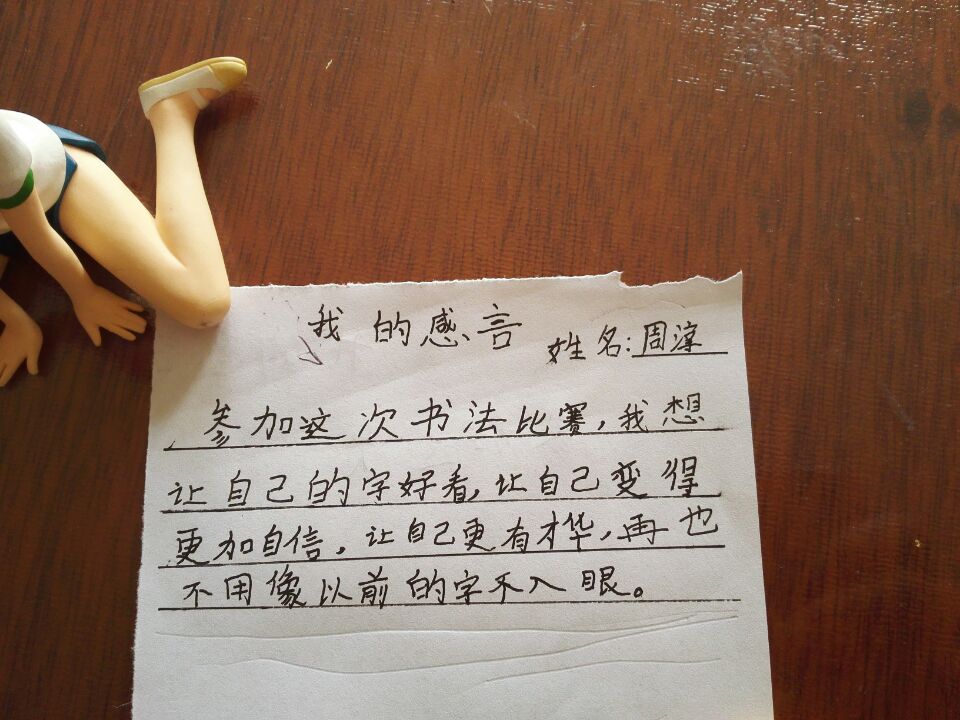 我的感言
姓名:周淳
参加这次书法比赛,我想
让自己的字好看,让自己变得
更加自信,让自己更有才华,再也
不用像以前的字不入眼。